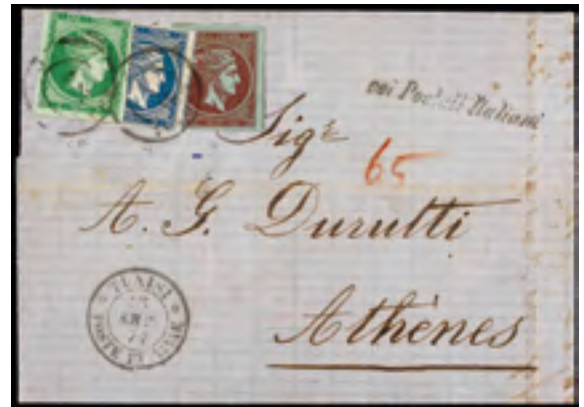 coi Postali Italiani
Sig.r
65
A. G. Durutti
Athènes
TUNISI
POSTE ITALIANE